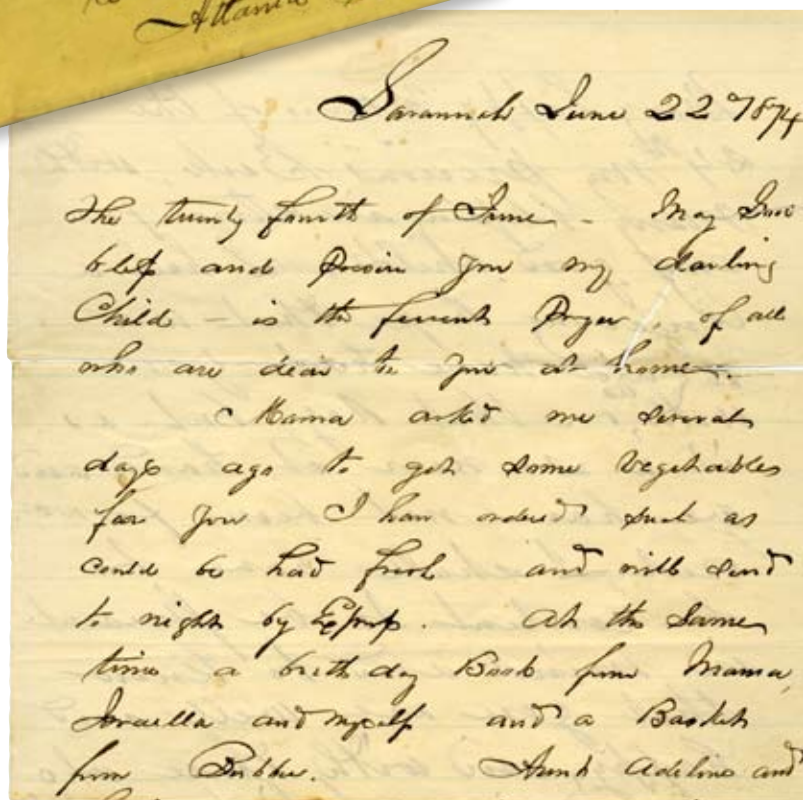 Atlanta
Savannah June 22d 1874
The twenty fourth of June - May God
bless and preserve you my darling
Child - is the fervent Prayer, of all
who are dear to you at home.
Mama asked me several
days ago to get some vegetables
for you I have ordered such as
could be had fresh and will send
to night by Express. At the same
time a birth day Book from Mama,
and myself and a Basket
from Bubbie. Aunt Adeline and